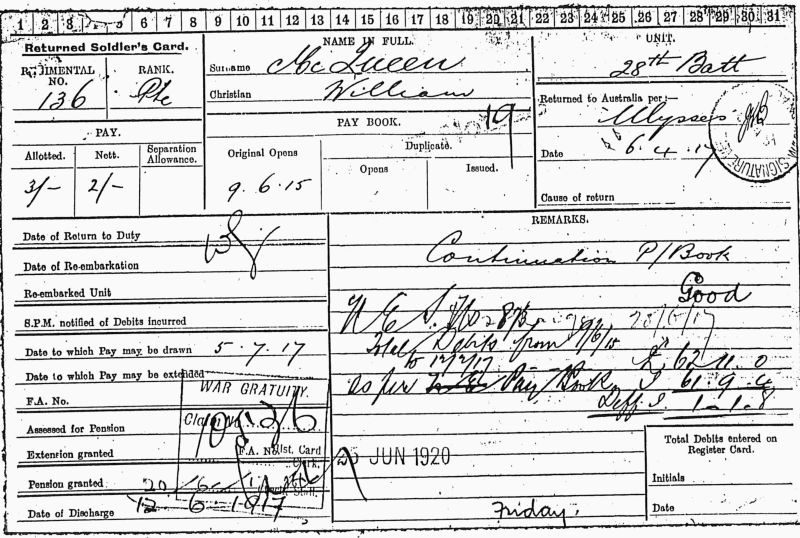 1 2 3 4 5 6 7 8 9 10 11 12 13 14 15 16 17 18 19 20 21 22 23 24 25 26 27 28 29 30 31
Returned Soldier's Card.
REGIMENTAL NO.
136
RANK.
Pte
NAME IN FULL.
Surname McQueen
Christian William
UNIT.
28th Batt
Returned to Australia per:—
Ulysses
Date 6.4.17
Cause of return
SIGNATURE
PAY.
Allotted. Nett. Separation Allowance.
3/- 2/-
PAY BOOK.
19
Original Opens
9.6.15
Duplicate.
Opens Issued.
Date of Return to Duty
Date of Re-embarkation
Re-embarked Unit
S.P.M. notified of Debits incurred
Date to which Pay may be drawn 5.7.17
Date to which Pay may be extended
F.A. No.
Assessed for Pension
Extension granted
Pension granted
Date of Discharge 12 6 1917
WAR GRATUITY.
Claim No.
F.A. No. Inst. Card
Clerk.
JUN 1920
REMARKS.
Continuation P/Book
Good
Total Debits from 9/6/15
to 12/2/17 £ 62.11.0
as per Pay Book £ 61.9.4
Diff £ 1.1.8
Total Debits entered on Register Card.
Initials
Date
Friday.